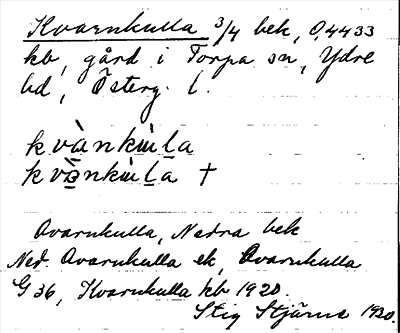 Kvarnkulla 3/4 bek, 0,4433
kb, gård i Torpa sn, Ydre
hd, Österg. l.
kvànkùla
kvànkùla †
Qvarnkulla, Nedra bek
Ned. Qvarnkulla ek, Qvarnkulla
G 36, Kvarnkulla kb 1920.
Stig Stjärne 1930.